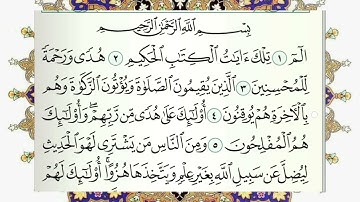 بِسْمِ ٱللَّهِ ٱلرَّحْمَٰنِ ٱلرَّحِيمِ
الٓمٓ ١ تِلْكَ ءَايَٰتُ ٱلْكِتَٰبِ ٱلْحَكِيمِ ٢ هُدًى وَرَحْمَةً
لِّلْمُحْسِنِينَ ٣ ٱلَّذِينَ يُقِيمُونَ ٱلصَّلَوٰةَ وَيُؤْتُونَ ٱلزَّكَوٰةَ وَهُم
بِٱلْءَاخِرَةِ هُمْ يُوقِنُونَ ٤ أُو۟لَٰٓئِكَ عَلَىٰ هُدًى مِّن رَّبِّهِمْ ۖ وَأُو۟لَٰٓئِكَ
هُمُ ٱلْمُفْلِحُونَ ٥ وَمِنَ ٱلنَّاسِ مَن يَشْتَرِى لَهْوَ ٱلْحَدِيثِ
لِيُضِلَّ عَن سَبِيلِ ٱللَّهِ بِغَيْرِ عِلْمٍ وَيَتَّخِذَهَا هُزُوًا ۚ أُو۟لَٰٓئِكَ لَهُمْ